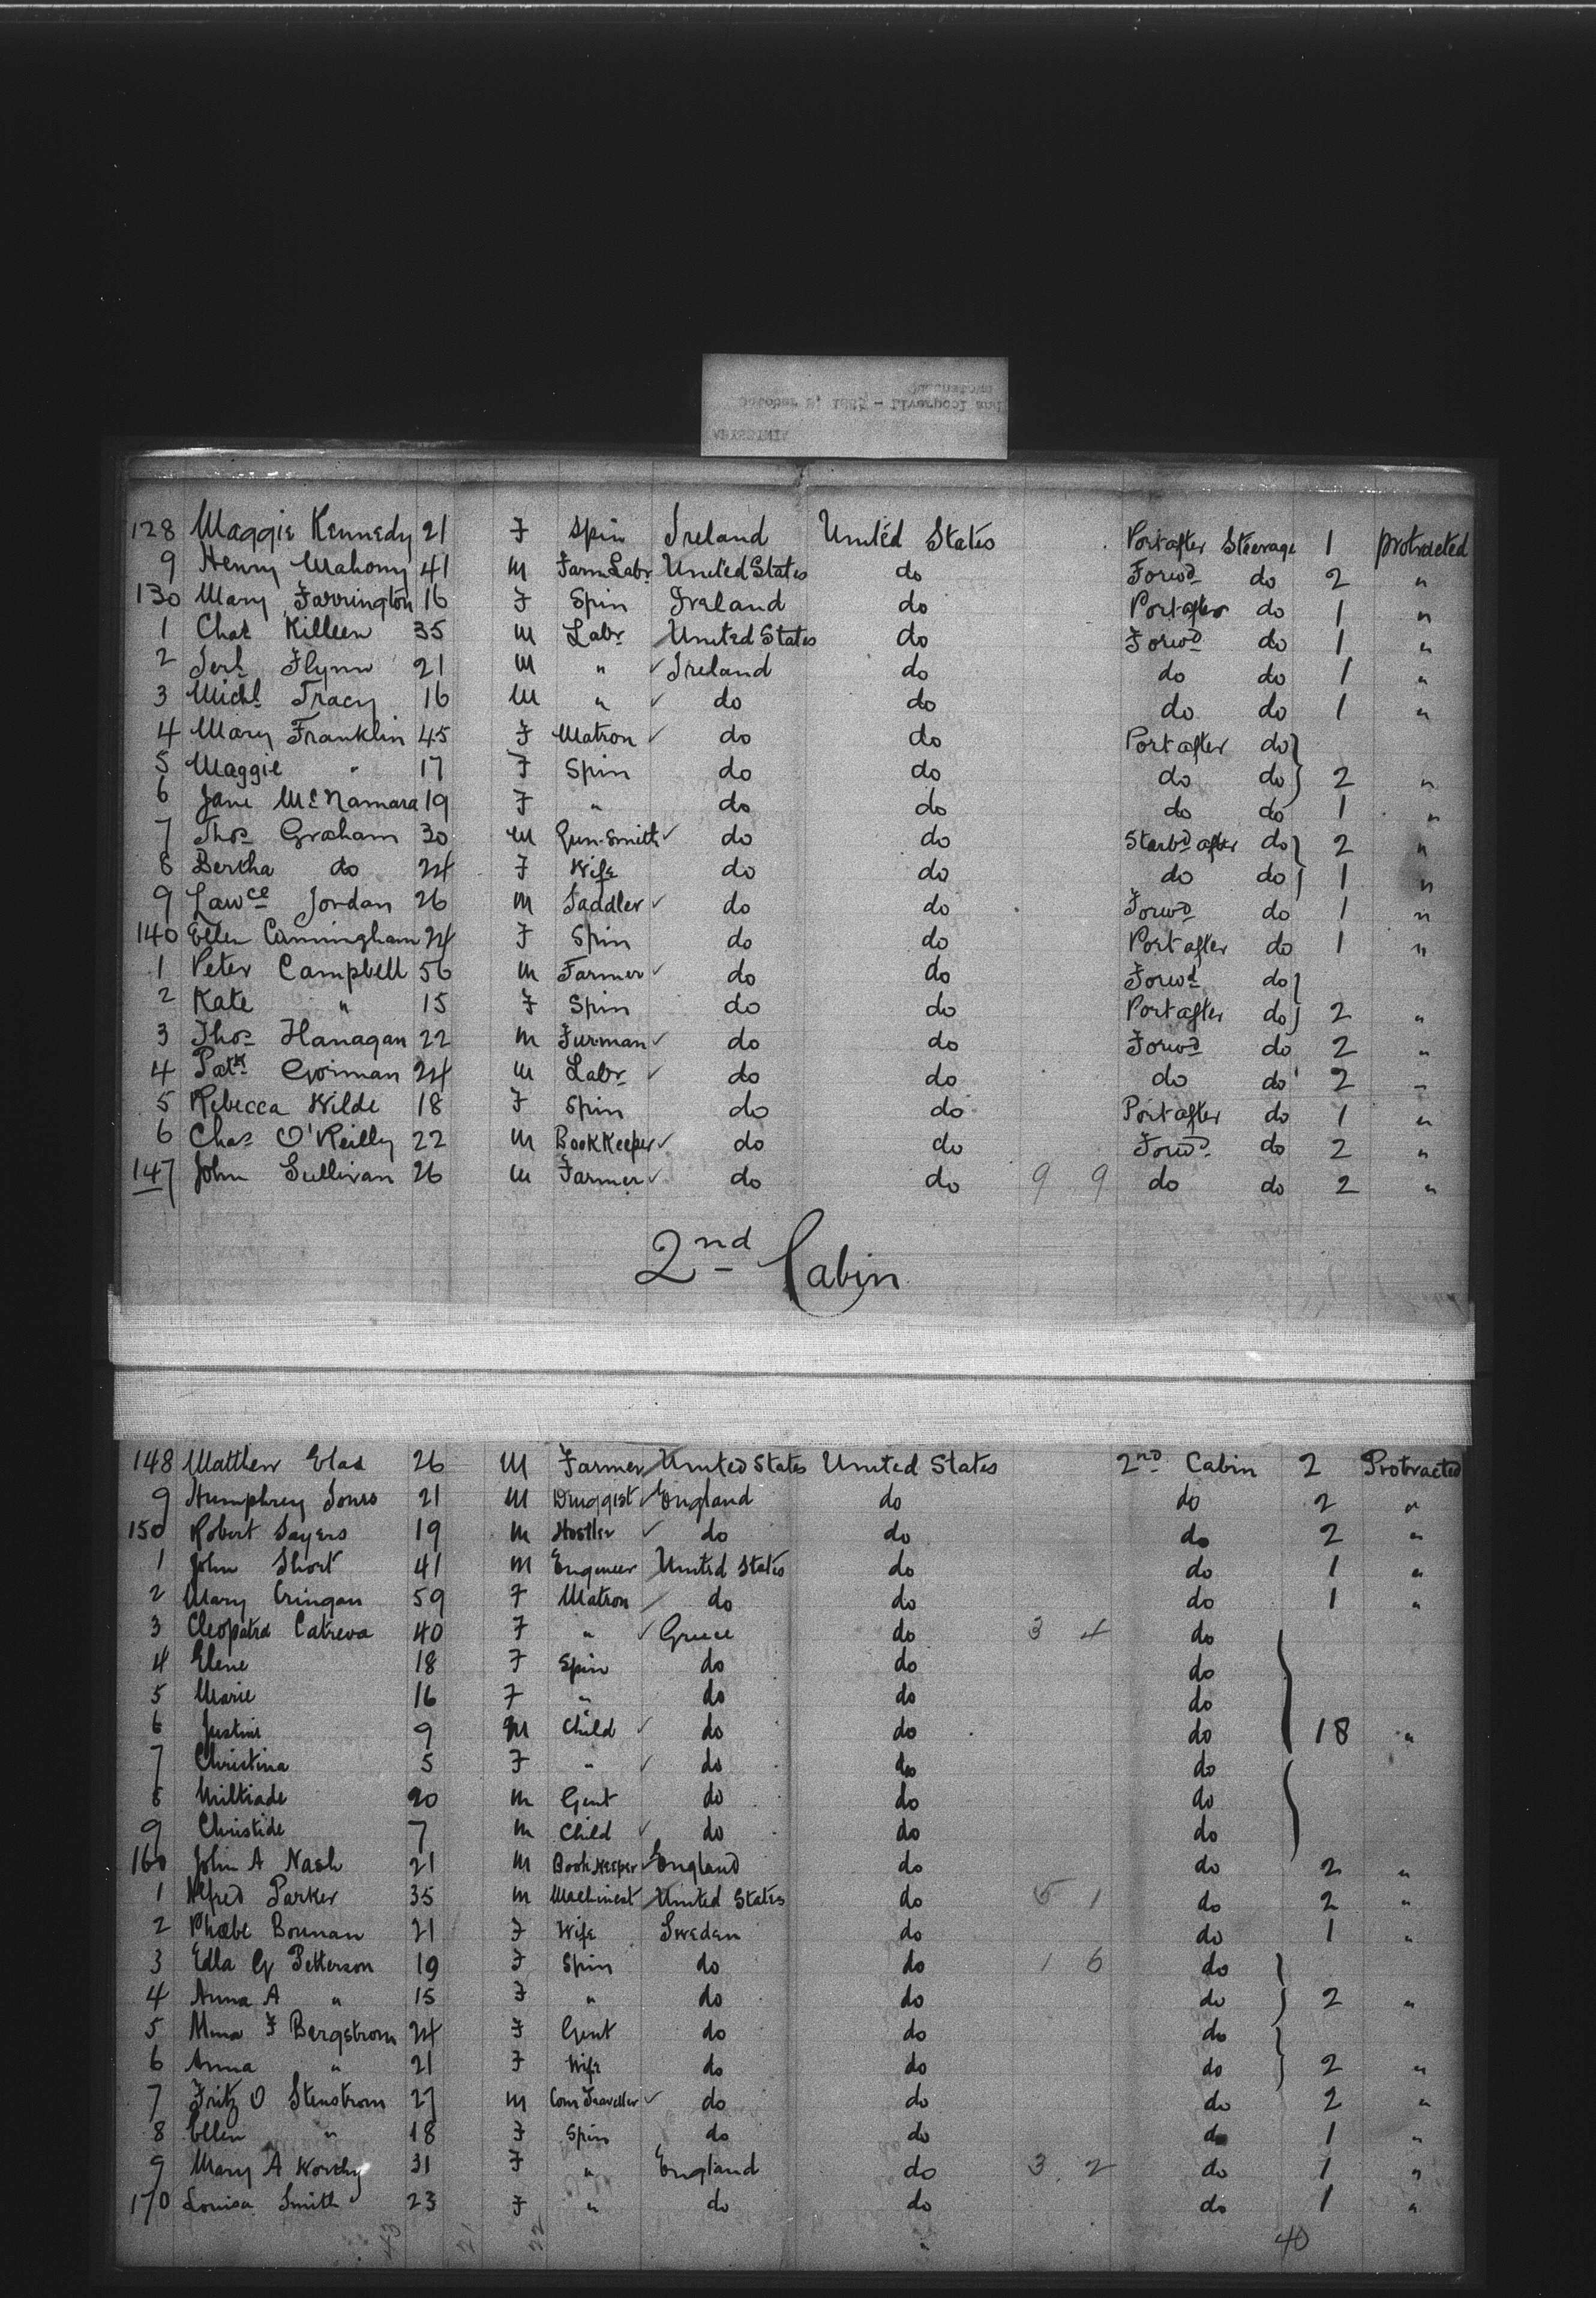 128 Maggie Kennedy 21 F Spin Ireland United States Port after Steerage 1 protracted
9 Henry Mahony 41 M Farm Labr United States do Forwd do 2 "
130 Mary Farrington 16 F Spin Ireland do Port after do 1 "
1 Chas Killeen 35 M Labr United States do Forwd do 1 "
2 Jerh Flynn 21 M " Ireland do do do 1 "
3 Michl Tracy 16 M " do do do do 1 "
4 Mary Franklin 45 F Matron do do Port after do
5 Maggie " 17 F Spin do do do do 2 "
6 Jane McNamara 19 F " do do do do 1 "
7 Thos Graham 30 M Gun-Smith do do Starbd after do 2 "
8 Bertha do 24 F Wife do do do do 1 "
9 Lawce Jordan 26 M Saddler do do Forwd do 1 "
140 Ellen Cunningham 24 F Spin do do Port after do 1 "
1 Peter Campbell 56 M Farmer do do Forwd do
2 Kate " 15 F Spin do do Port after do 2 "
3 Thos Flanagan 22 M Furman do do Forwd do 2 "
4 Patk Gorman 24 M Labr do do do do 2 "
5 Rebecca Wilde 18 F Spin do do Port after do 1 "
6 Chas O'Reilly 22 M Book Keeper do do Forwd do 2 "
147 John Sullivan 26 M Farmer do do 9 9 do do 2 "
2nd Cabin
148 Matthew 26 M Farmer United States United States 2nd Cabin 2 Protracted
9 Humphrey Jones 21 M Druggist England do do 2 "
150 Robert Sayers 19 M Hostler do do do 2 "
1 John Short 41 M Engineer United States do do 1 "
2 Mary Cringan 59 F Matron do do do 1 "
3 Cleopatra Catreva 40 F " Greece do 3 4 do
4 Elene 18 F Spin do do do
5 Marie 16 F " do do do
6 9 M Child do do do 18 "
7 Christina 5 F " do do do
8 Miltiade 20 M Gent do do do
9 Christide 7 M Child do do do
160 John A Nash 21 M Book Keeper England do do 2 "
1 Alfred Parker 35 M Machinest United States do 5 1 do 2 "
2 Phoebe 21 F Wife Sweden do do 1 "
3 Edla G Petterson 19 F Spin do do 1 6 do
4 Anna A " 15 F " do do do 2 "
5 F Bergstrom 24 F Gent do do do
6 Anna " 21 F Wife do do do 2 "
7 Fritz O Stenstrom 27 M Com Traveller do do do 2 "
8 Ellen " 18 F Spin do do do 1 "
9 Mary A Worthy 31 F " England do 3 2 do 1 "
170 Louisa Smith 23 F " do do do 1 "
40